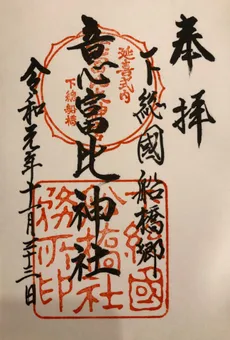 奉拝
下総國船橋郷
意富比神社
令和元年十一月二十三日
延喜式内
下總船橋
下總國
船橋社
務所印